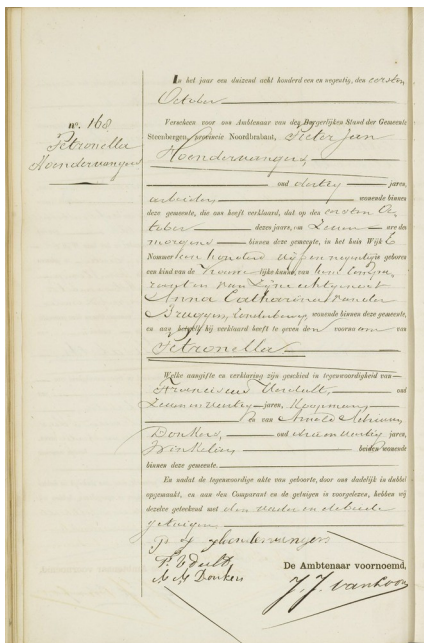 In het jaar een duizend acht honderd een en negentig, den eersten
October
nº. 168
Petronella
Hoendervangers
Verscheen voor ons Ambtenaar van den Burgerlijken Stand der Gemeente
Steenbergen, provincie Noordbrabant, Pieter Jan
Hoendervangers,
oud dertig jaren,
arbeider, wonende binnen
deze gemeente, die ons heeft verklaard, dat op den eersten Oc-
tober dezes jaars, om zeven ure des
morgens binnen deze gemeente, in het huis Wijk E
Nommer een honderd vijf en negentig is geboren
een kind van de vrouwelijke kunne, van hem Compa-
rant en van zijne echtgenoot
Anna Catharina van der
Bruggen, wonende binnen deze gemeente,
en aan hetwelk hij verklaard heeft te geven den voornaam van
Petronella
Welke aangifte en verklaring zijn geschied in tegenwoordigheid van
Franciscus Verdult, oud
zeven en veertig jaren, Koopman,
en van Arnold Adriaan
Donkers, oud drie en veertig jaren,
Winkelier beiden wonende
binnen deze gemeente
En nadat de tegenwoordige akte van geboorte, door ons dadelijk in dubbel
opgemaakt, en aan den Comparant en de getuigen is voorgelezen, hebben wij
dezelve geteekend met den vader en de beide
getuigen
Hoendervangers
F. Verdult
A A Donkers
De Ambtenaar voornoemd,
J. J. van Loon